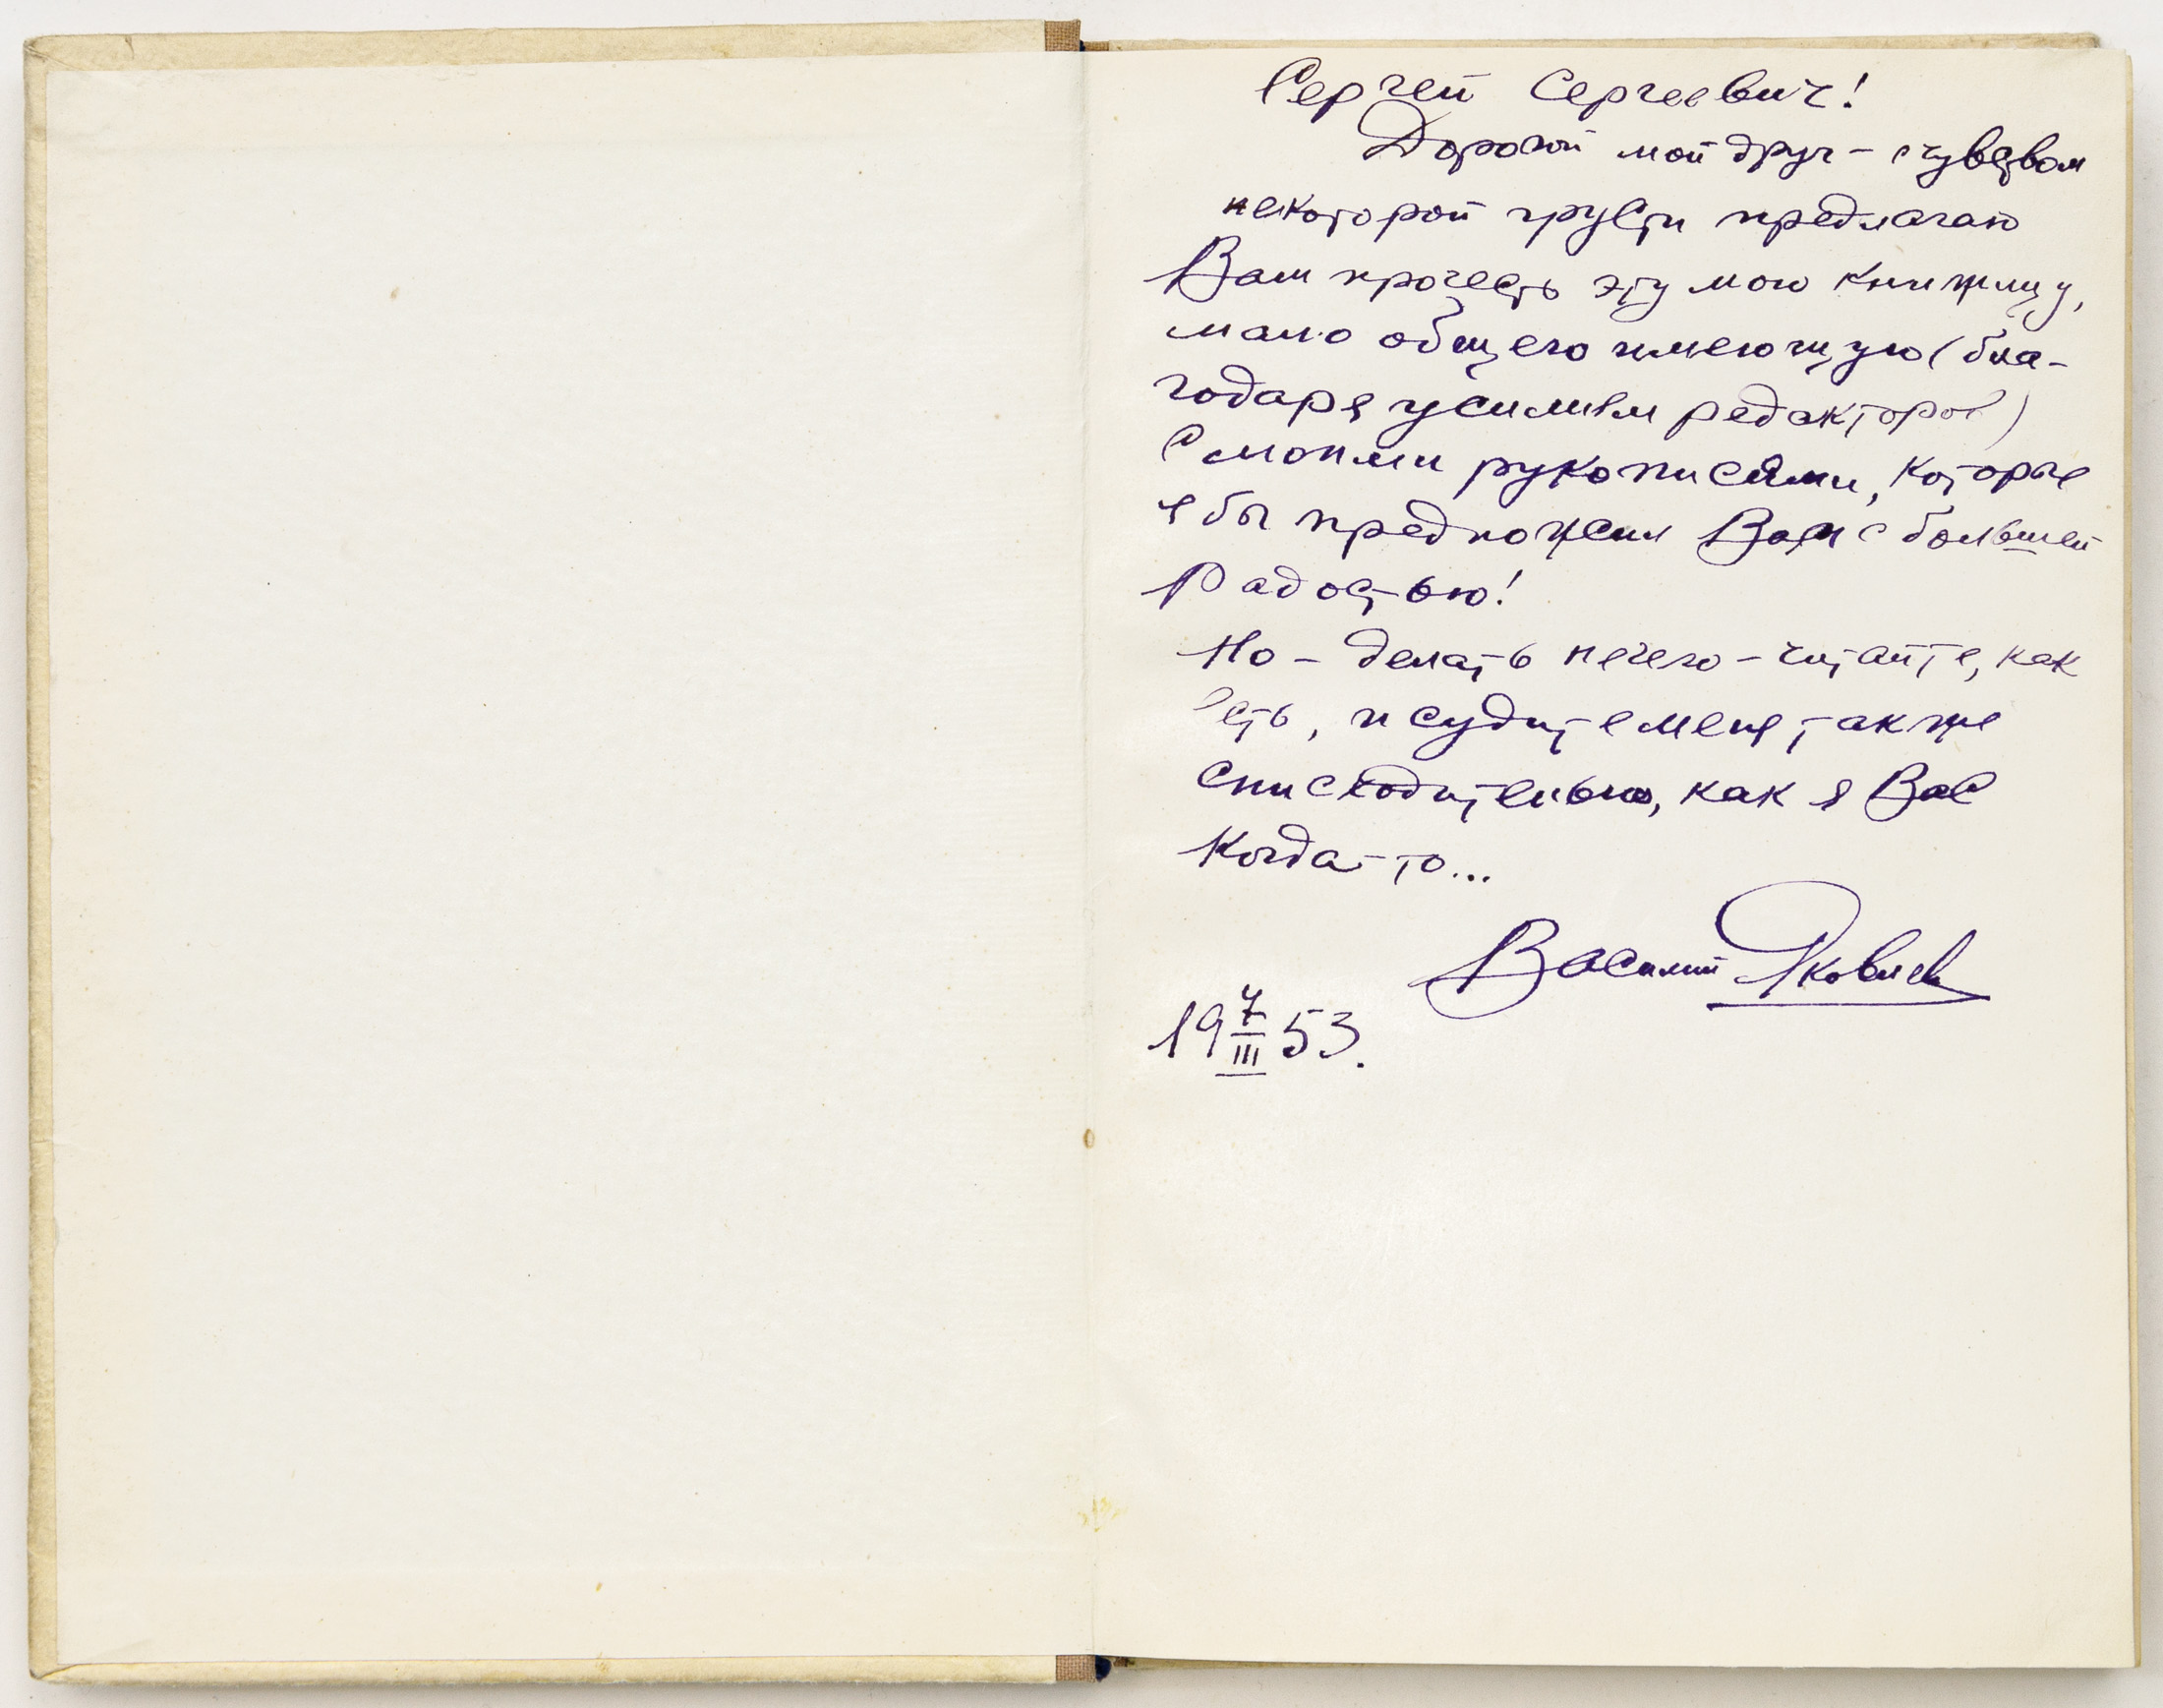 Сергей Сергеевич!
Дорогой мой друг – с чувством
некоторой грусти предлагаю
Вам прочесть эту мою книжицу,
мало общего имеющую (бла-
годаря усилиям редакторов)
с моими рукописями, которые
я бы предложил Вам с большей
радостью!
Но – делать нечего – читайте, как
есть, и судите меня так же
снисходительно, как я Вас
когда-то...
Василий Яковлев
19 7/III 53.